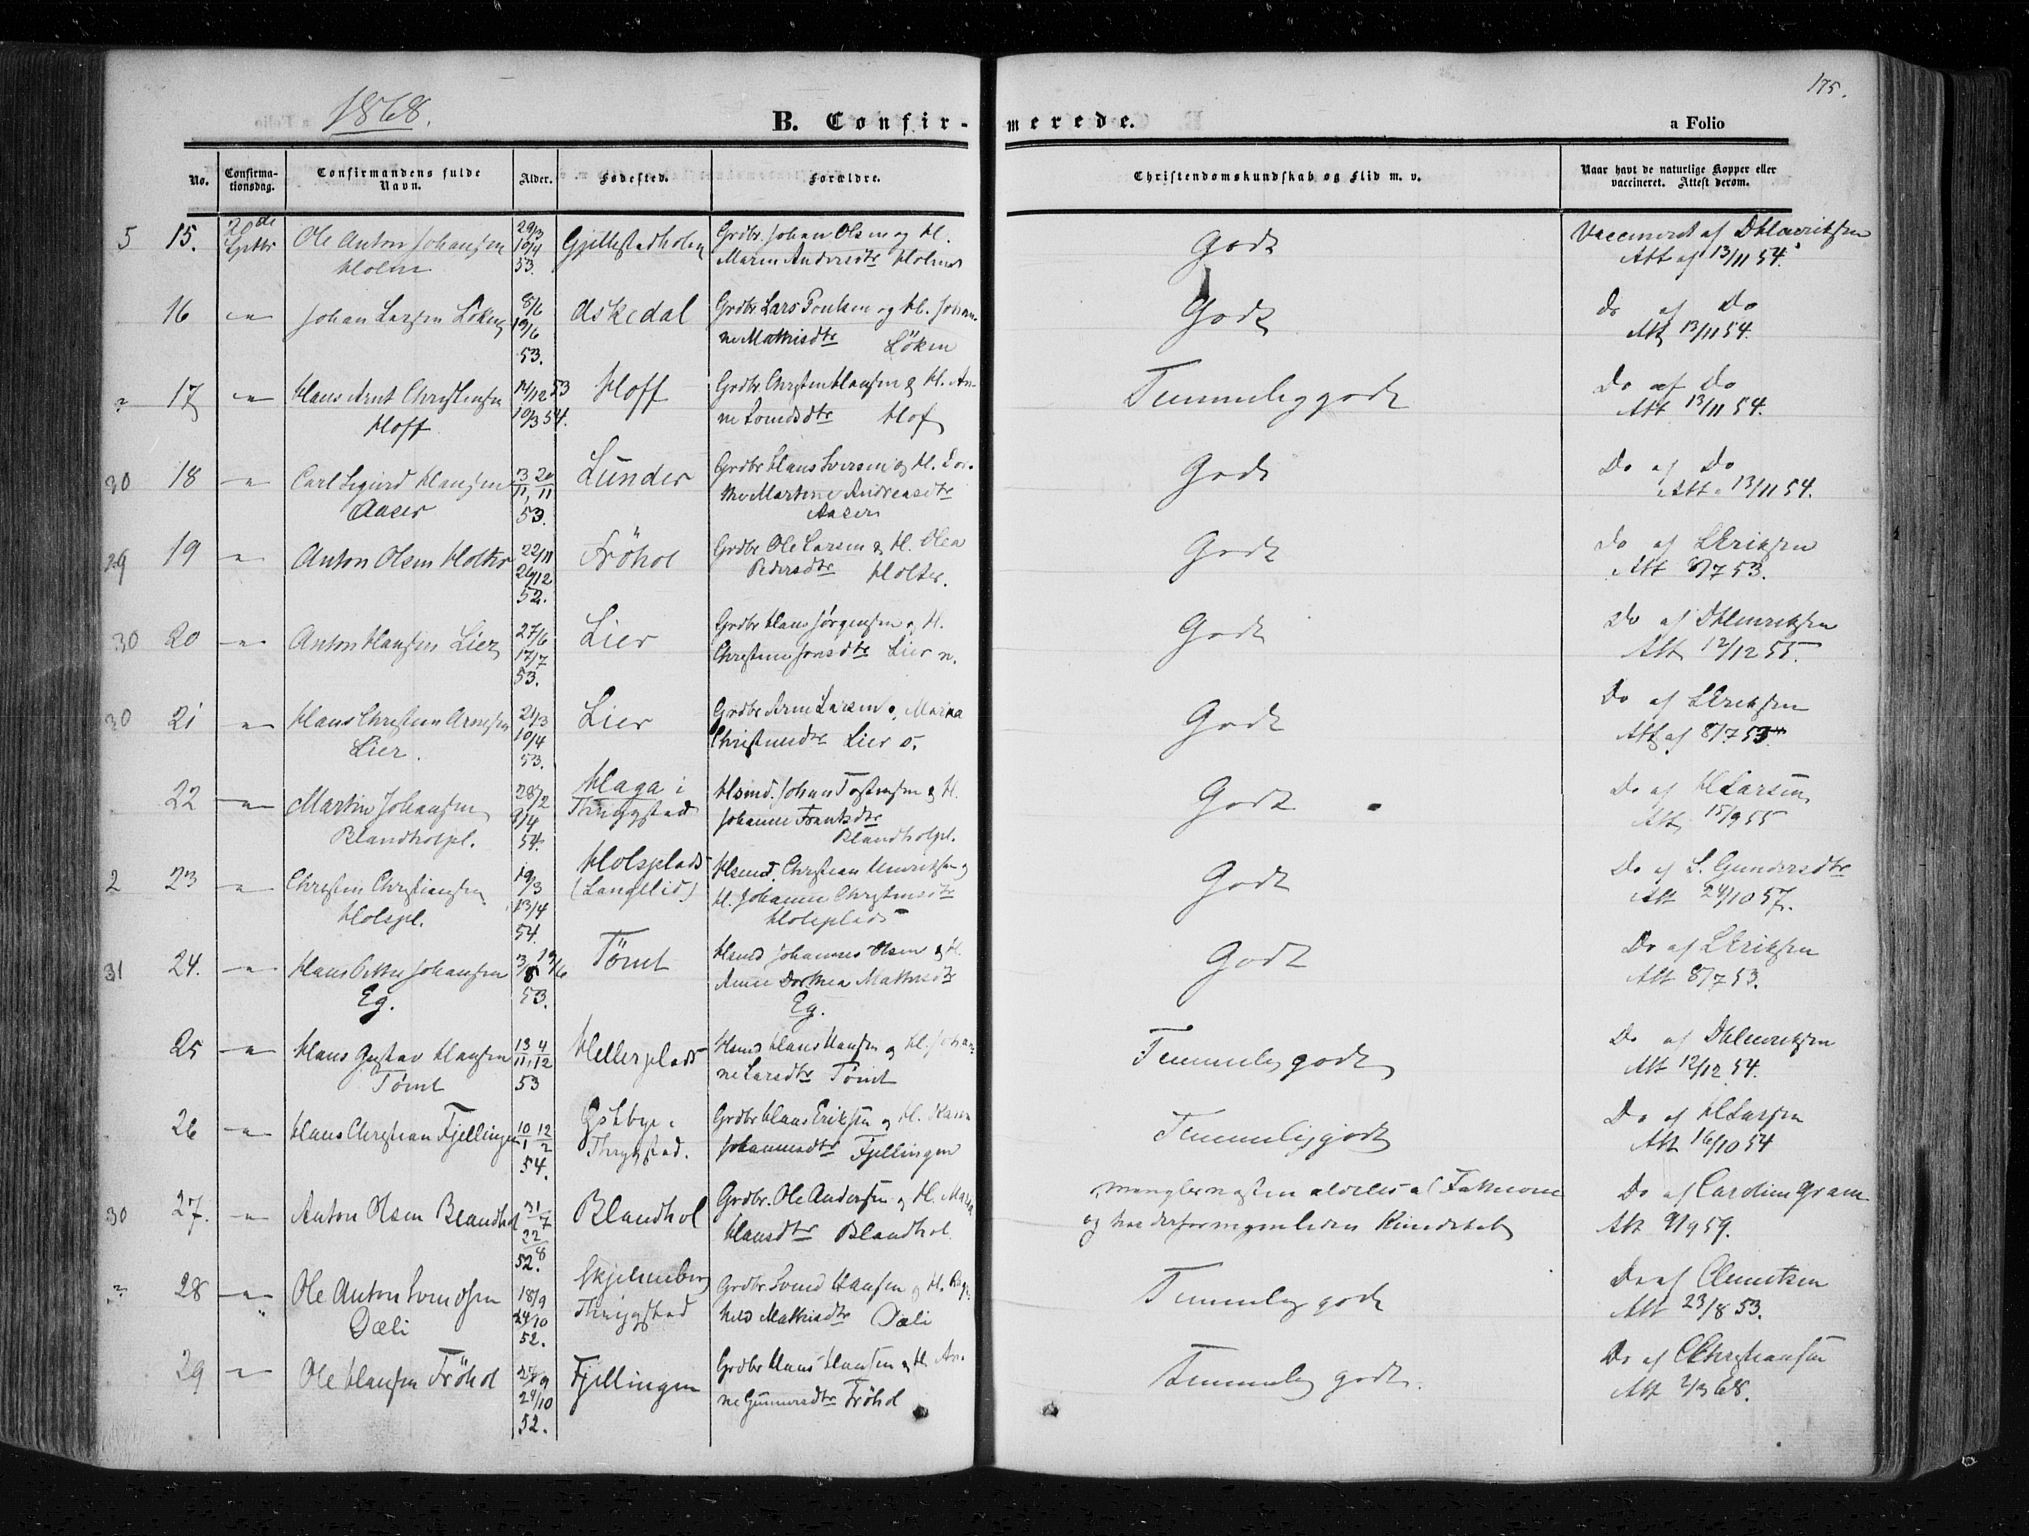 175.
1868.
B. Confir-merede.
a Folio
No.
Confirma-
tionsdag.
Confirmandens fulde
Navn.
Alder.
Fødested.
Forældre.
Christendomskundskab og Flid m. v.
Naar havt de naturlige Kopper eller
vaccineret. Attest derom.
5 15. 20de Ole Anton Johansen 29/3 Gjellestadholm Grdbr. Johan Olsen og H. Godt Vaccineret af DHenriksen
Holm 10/4 Maren Andersdtr Holmen Att af 13/11 54.
53.
16 Johan Larsen Løken 8/6 Askedal Grdbr Lars Poulsen og H. Johan- Godt Do af Do
19/6 ne Mathisdtr Løken Att 13/11 54.
53.
17 Hans Arnt Christensen 14/12 53 Hoff Grdbr Christen Hansen & H. An- Temmelig godt Do af Do
Hoff 19/3 54. ne Svendsdtr Hof Att 13/11 54.
30 18 Carl Sigurd Hansen 3/11, 20/11 Lunder Grdbr Hans Iversen og H. Dor- Godt Do af Do
Aaser 53. thea Martine Andreasdtr Att. 13/11 54.
Aaser
29 19 Anton Olsen Holter 22/11 Frøhol Grdbr Ole Larsen & H. Olea Godt Do af LEriksen
26/12 Pedersdtr Holter. Att 8/7 53.
52.
30 20 Anton Hansen Lier 27/6 Lier Grdbr Hans Jørgensen & H. Godt Do af DHenriksen
17/7 Christine Jonsdtr Lier n. Att 12/12 55.
53.
30 21 Hans Christian Arnesen 21/3 Lier Grdbr Arne Larsen & Maria Godt Do af LEriksen
Lier. 10/4 Christensdtr Lier ø. Att af 8/7 53
53.
22 Martin Johansen 28/2 Haga i Hsmd. Johan Torstensen & H. Godt Do af HLarsen
Blandholpl. 9/4 Thrygstad Johanne Frantsdtr Att 15/9 55
54. Blandholpl.
2 23 Christen Christiansen 19/3 Holsplads Hsmd. Christian Henriksen og Godt Do af S. Gundersdtr
Holspl. 13/4 (Langelid) H. Johanne Christensdtr Att 24/10 57.
54. Holsplads
31 24. Hans Johansen 3/5 19/6 Tømt Hsmd Johannes Olsen & H. Godt Do af LEriksen
Eg. 53. Anne Dorthea Mathisdtr Att 8/7 53.
Eg.
25 Hans Gustav Hansen 13/11, 4/12 Hellerplads Hsmd Hans Hansen og H. Johan- Temmelig godt Do af DHenriksen
Tømt 53 ne Larsdtr Tømt Att 12/12 54.
26 Hans Christian Fjellingen 10/1 12/2 Østbye i Grdbr Hans Eriksen og H. Karen Temmelig godt Do af HLarsen
54. Thrygstad. Johannesdtr Fjellingen Att 16/10 54
30 27. Anton Olsen Blandhol 31/7 Blandhol Grdbr. Ole Andersen og H. Maren mangler næsten aldeles al Fatteevne Do af Caroline Gram
22/8 Hansdtr Blandhol og har derfor ingenlunde Kundskab Att 9/9 59.
52.
28 Ole Anton Svendsen 18/9 Skjelnenberg Grdbr. Svend Hansen og H. Rag- Temmelig godt Do af Clemetsen
Dæli 24/10 Thrygstad hild Mathisdtr Dæli Att 23/8 53.
52.
29 Ole Hansen Frøhol 25/9 Fjellingen Grdbr Hans Hansen & H. An- Temmelig godt. Do af CChristiansen
24/10 ne Gunnersdtr Frøhol Att 2/3 68.
52.